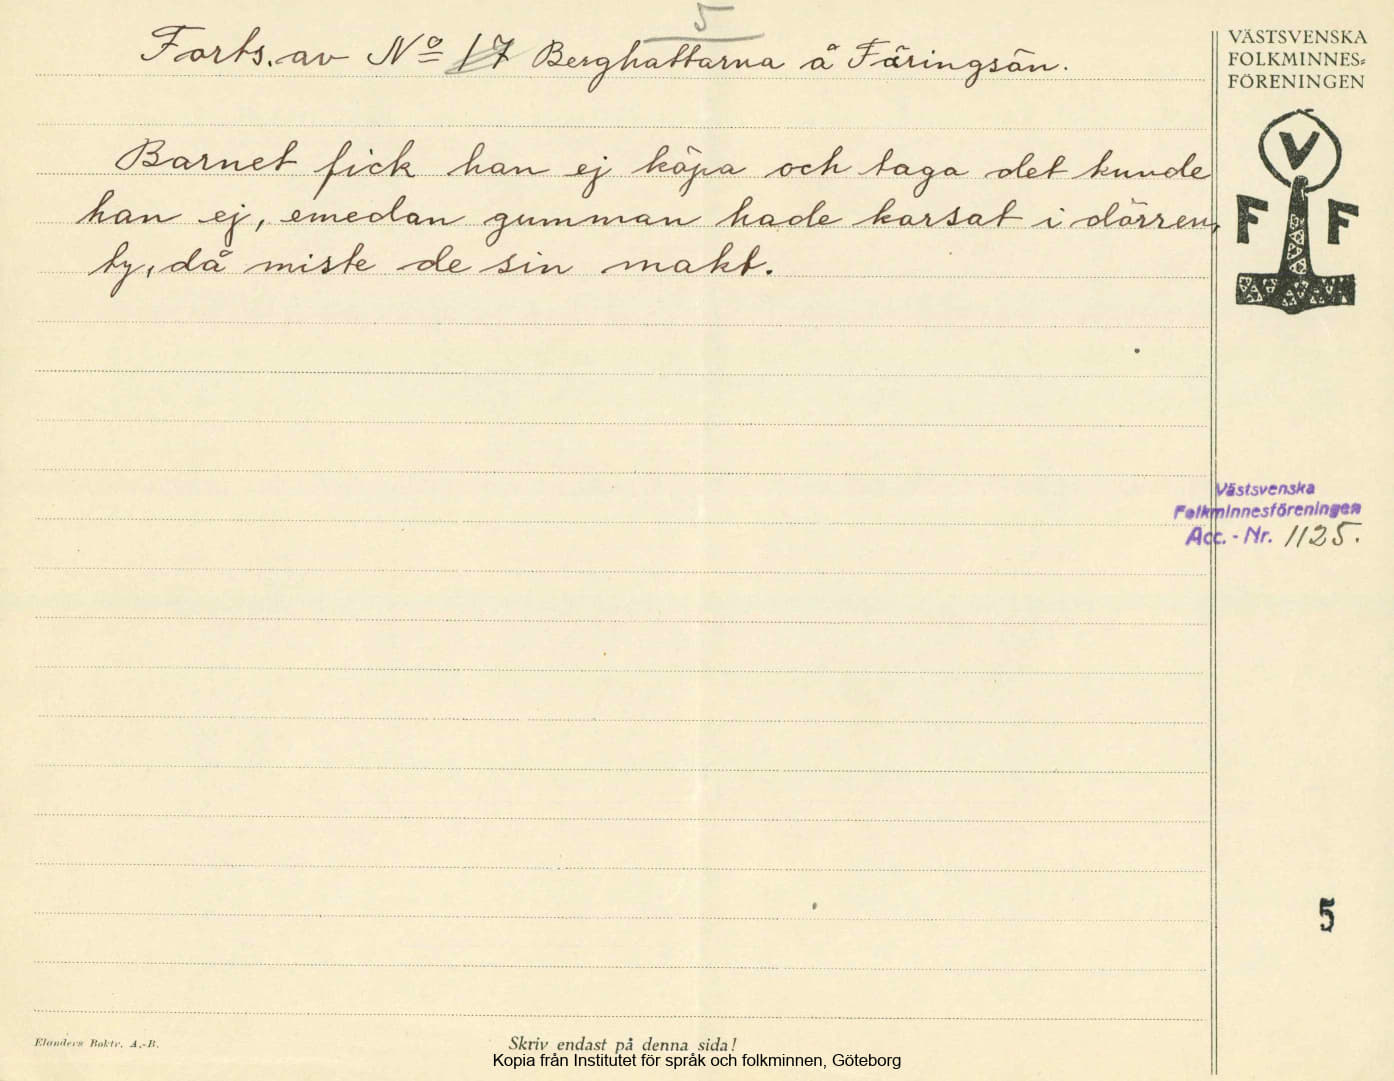 5
Forts. av No 17 Berghattarna å Färingsön.
Barnet fick han ej köpa och taga det kunde
han ej, emedan gumman hade korsat i dörren,
ty, då miste de sin makt.
VÄSTSVENSKA
FOLKMINNES=
FÖRENINGEN
V
F F
Västsvenska
Folkminnesföreningen
Acc. - Nr. 1125.
5
Elanders Boktr. A.-B.
Skriv endast på denna sida!
Kopia från Institutet för språk och folkminnen, Göteborg